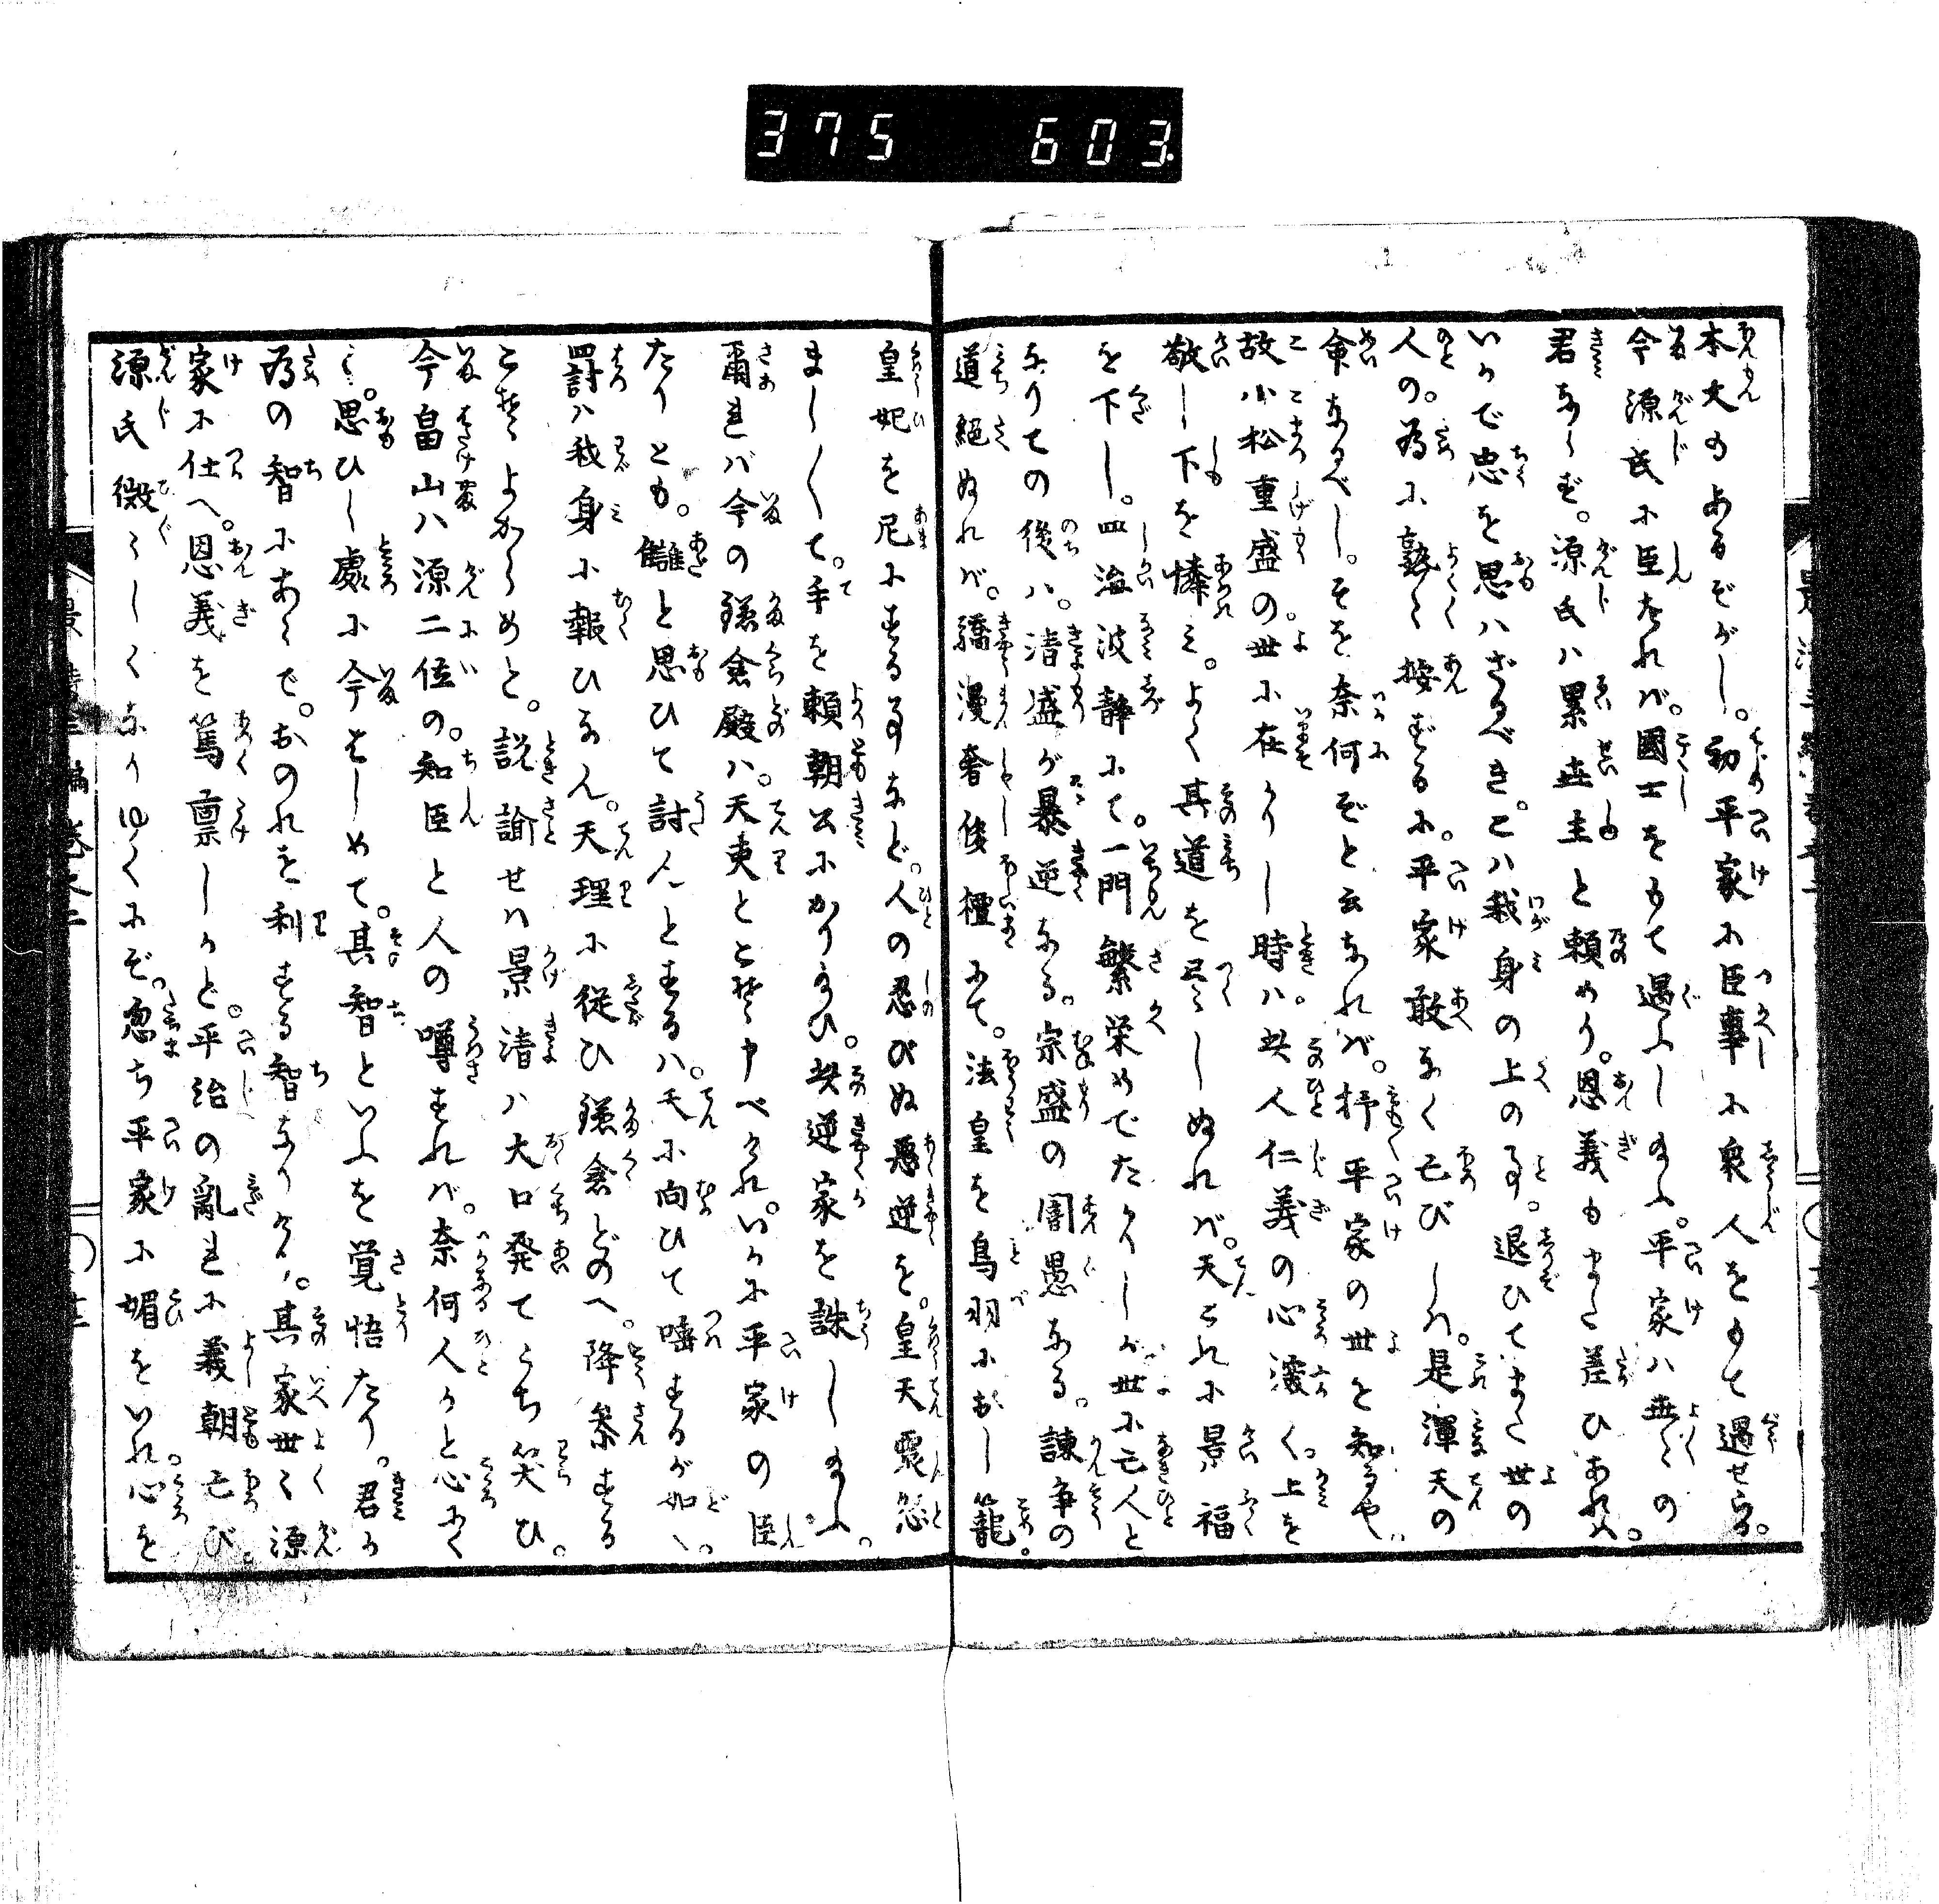 375 603.
本文のあるぞかし。初平家に臣事に衆人をもて遇せらる。
今源氏に臣たれバ。國士をもて遇ふし給ふ。平家ハ世々の
君ならず。源氏ハ累世主と頼めり。恩義もまた差ひあれバ。
いかで忠を思ハざるべき。こハ我身の上の事。退ひてまた世の
人の。為に熟く按ずるに。平家敢なく亡びしハ。是渾天の
命なるべし。そを奈何ぞと云なれバ。抒平家の世を知るや。
故小松重盛の。世に在りし時ハ。其人仁義の心深く。上を
敬し下を憐ミ。よく其道を尽しぬれバ。天これに景福
を下し。四海波静にて。一門繁栄めでたかりしが世に亡人と
なりての後ハ。清盛が暴逆なる。宗盛の闇愚なる。諫争の
道絶ぬれバ。驕漫奢侈檀にて。法皇を鳥羽におし籠。
皇妃を尼にする事など。人の忍びぬ悪逆を。皇天震怒
まし〳〵て。手を頼朝公にかり給ひ。其逆家を誅し給ふ。
爾れバ今の鎌倉殿ハ。天吏とこそ申べけれ。いかに平家の臣
たりとも。讎と思ひて討んとするハ。天に向ひて唾するが如く。
罰ハ我身に報ひなん。天理に従ひ鎌倉どのへ。降参する
こそよからめと。説諭せハ景清ハ大口発てうち笑ひ。
今畠山ハ源二位の。知臣と人の噂すれバ。奈何人かと心にく
く。思ひし處に今はしめて。其智といふを覚悟たり。君が
為の智にあらで。おのれを利する智なりけり。其家世々源
家に仕へ。恩義を篤禀しかど。平治の亂れに義朝亡び。
源氏微々しくなりゆくにぞ。忽ち平家に媚をいれ。心を